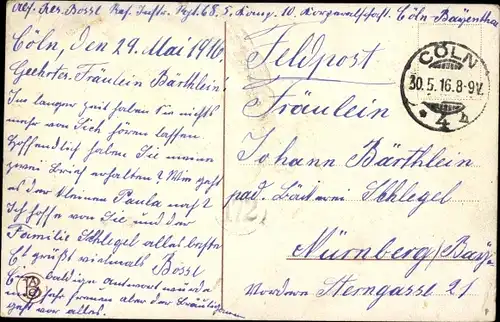 Abs. Res. Bossl Res. Inftr. Rgt. 68. 5. Komp. 10. Korporalschaft. Cöln Bayenthal
Cöln, den 29. Mai 1916.
Geehrtes Fräulein Bärthlein!
Im langer Zeit haben Sie nichts
mehr von Sich hören lassen.
Hoffendlich haben Sie meine
zwei Brief erhalten? Wie geht
es der kleinen Paula noch?
Ich hoffe von Sie und der
Familie Schlegel alles beste
Es grüßt vielmals Bossl
baldige Antwort würde
mich sehr freuen aber der
geht vor alles.
Feldpost
Fräulein
Johann Bärthlein
pad. Bäckerei Schlegel
Nürnberg/Bay.
Vordere Sterngasse 21
CÖLN
30.5.16.8-9V.
* 4 h